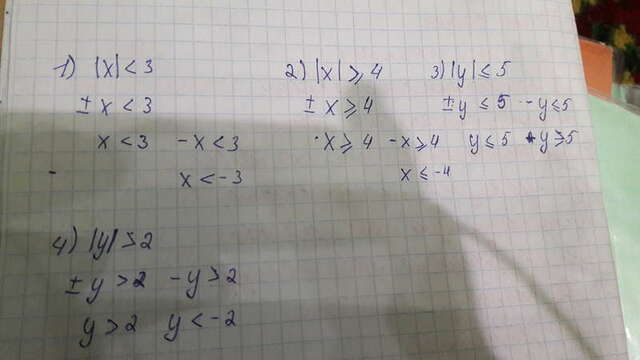 1) |x| < 3
± x < 3
x < 3 - x < 3
x < - 3
2) |x| ⩾ 4
± x ⩾ 4
x ⩾ 4 - x ⩾ 4
x ≤ -4
3) |y| ≤ 5
± y ≤ 5 - y ≤ 5
y ≤ 5 y ⩾ 5
4) |y| > 2
± y > 2 - y > 2
y > 2 y < - 2